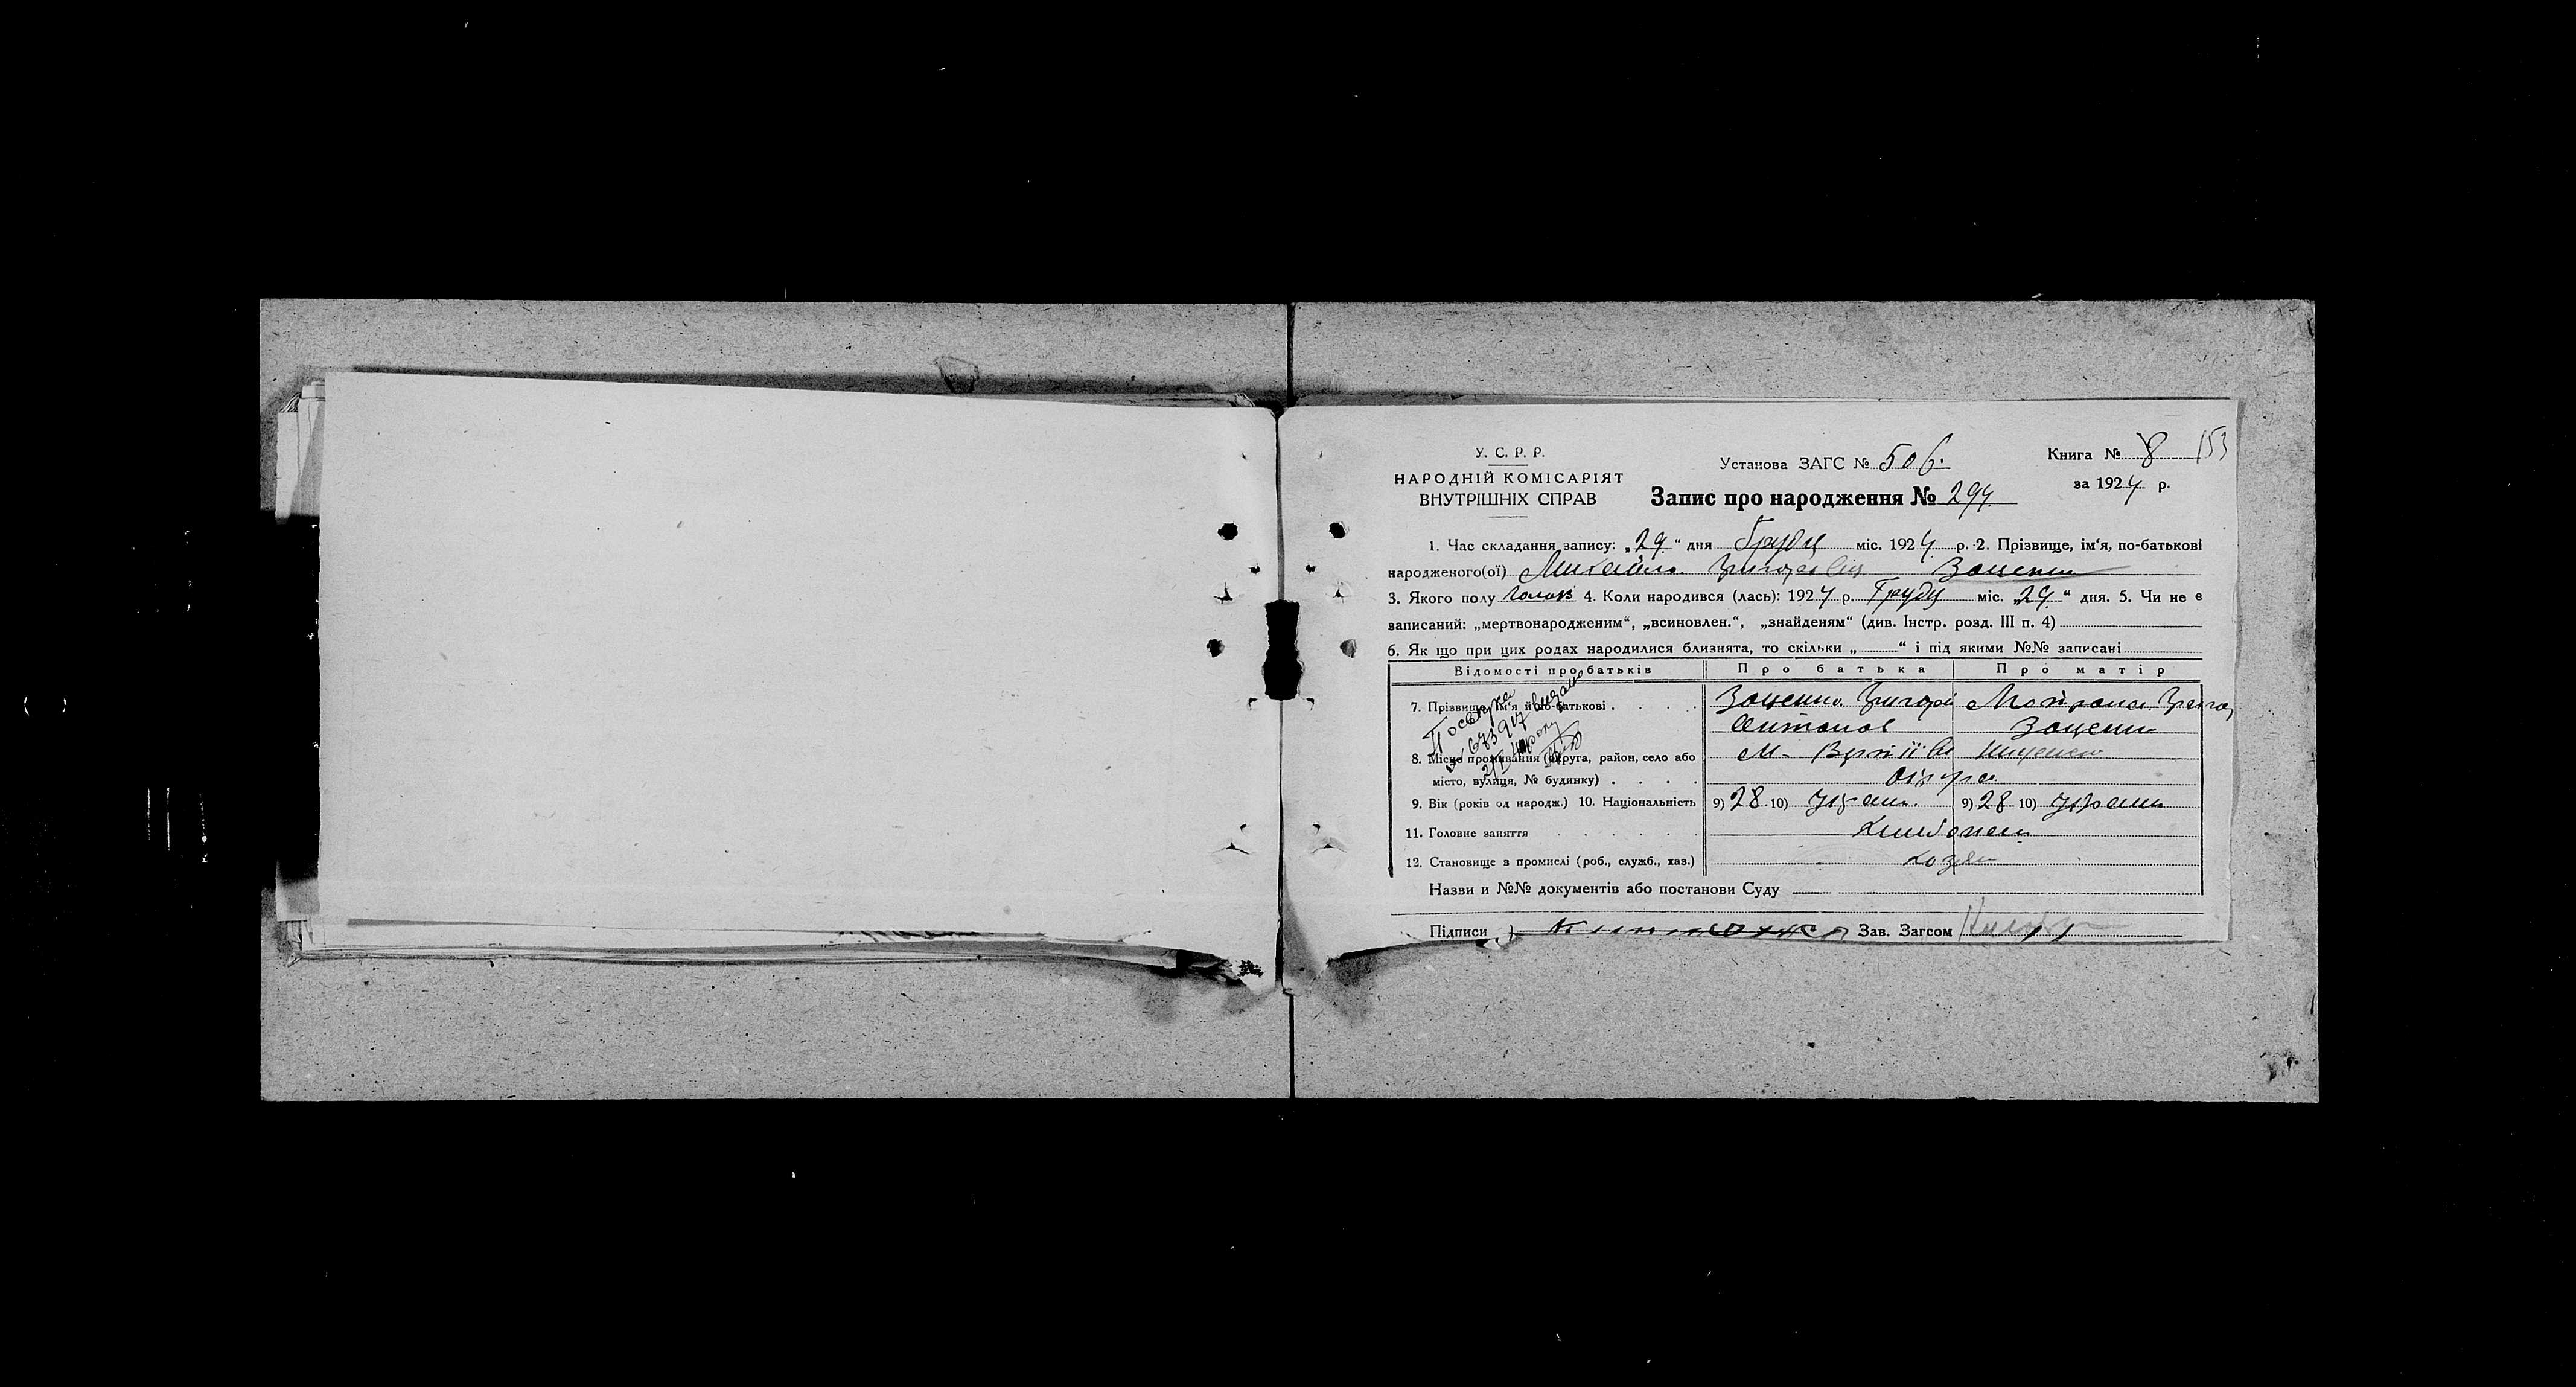 У. С. Р. Р.
НАРОДНІЙ КОМІСАРІЯТ
ВНУТРІШНІХ СПРАВ
Установа ЗАГС № 506.
Книга № 8 153
за 1924 р.
Запис про народження № 294
1. Час складання запису: „29“ дня Грудн міс. 1924 р. 2. Прізвище, ім‘я, по-батькові
народженого(ої) Михайло Григорович Заценко
3. Якого полу 4. Коли народився (лась): 1924 р. Грудн міс. „29“ дня. 5. Чи не є
записаний: „мертвонародженим“, „всиновлен.“, „знайденям“ (див. Інстр. розд. III п. 4)
6. Як що при цих родах народилися близнята, то скільки „ “ і під якими №№ записані
Відомості про батьків Про батька Про матір
7. Прізвище, ім‘я й по-батькові Заценко Григорій Мотрона
Антонов Заценко
8. Місце проживання (округа, район, село або М. Вертіївк
місто, вулиця, № будинку) округа
9. Вік (років од народж.) 10. Національність 9) 28 10) україн. 9) 28 10) україн
11. Головне заняття
12. Становище в промислі (роб., служб., хаз.) хозяїн
Назви и №№ документів або постанови Суду
Підписи Зав. Загсом